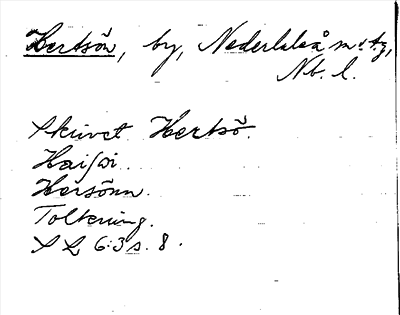 Hertsön, by, Nederluleå m. tg,
Nb. l.
Skrivet Hertsö.
Hai∫øi.
Hersönn.
Tolkning.
SL 6:3 s. 8.